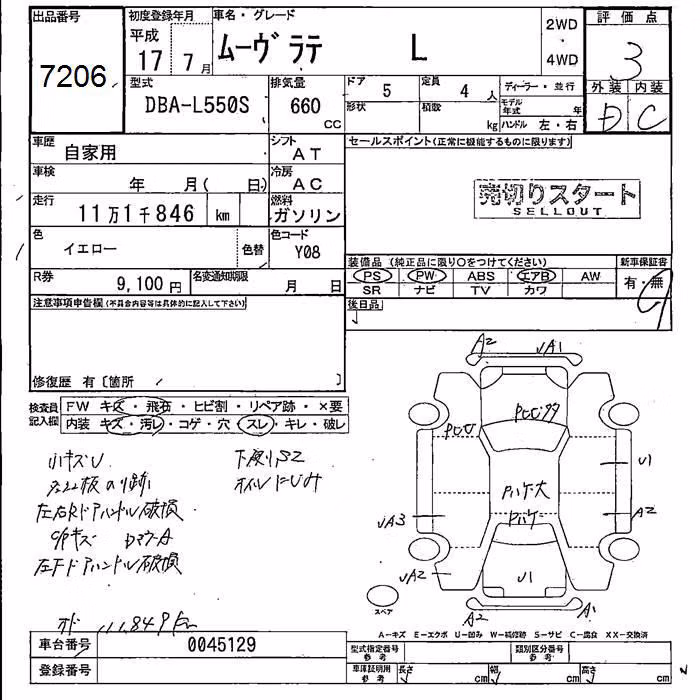 出品番号 初度登録年月 車名・グレード 2WD 評価点
7206 平成 17 7月 ムーヴ ラテ L 4WD 3
型式 排気量 ドア 5 定員 4人 ディーラー・並行 外装 内装
DBA-L550S 660 CC 形状 積数 kg モデル年式 年 D C
ハンドル 左・右
車歴 自家用 シフト AT セールスポイント(正常に機能するものに限ります)
車検 年 月( 日) 冷房 AC 売切りスタート
SELLOUT
走行 11万1千846 km 燃料 ガソリン
色 イエロー 色替 色コード Y08
装備品(純正品に限り○をつけてください) 新車保証書
R券 9,100円 名変通知期限 月 日 PS PW ABS エアB AW 有・無
SR ナビ TV カワ
注意事項申告欄(不具合内容等は具体的に記入して下さい) 後日品
修復歴 有〔箇所 〕
検査員記入欄 FW キズ・飛石・ヒビ割・リペア跡・×要
内装 キズ・汚レ・コゲ・穴・スレ・キレ・破レ
A2 UA1
PCU
小キズU 下廻りS2
オイルにじみ
左右Rドアハンドル破損
左Fドアハンドル破損
U1
A2
UA3
UA2
U1
スペア
A2 A1
A−キズ E−エクボ U−凹み W−補修跡 S−サビ C−腐食 XX−交換済
車台番号 0045129 型式指定番号 参考 類別区分番号 参考
登録番号 車庫証明用 参考 長さ cm 幅 cm 高さ cm